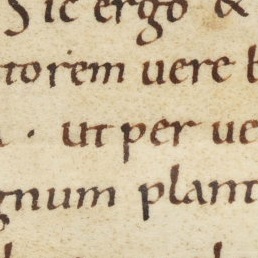 Sic ergo &
torem vere
· ut per ve
gnum plant